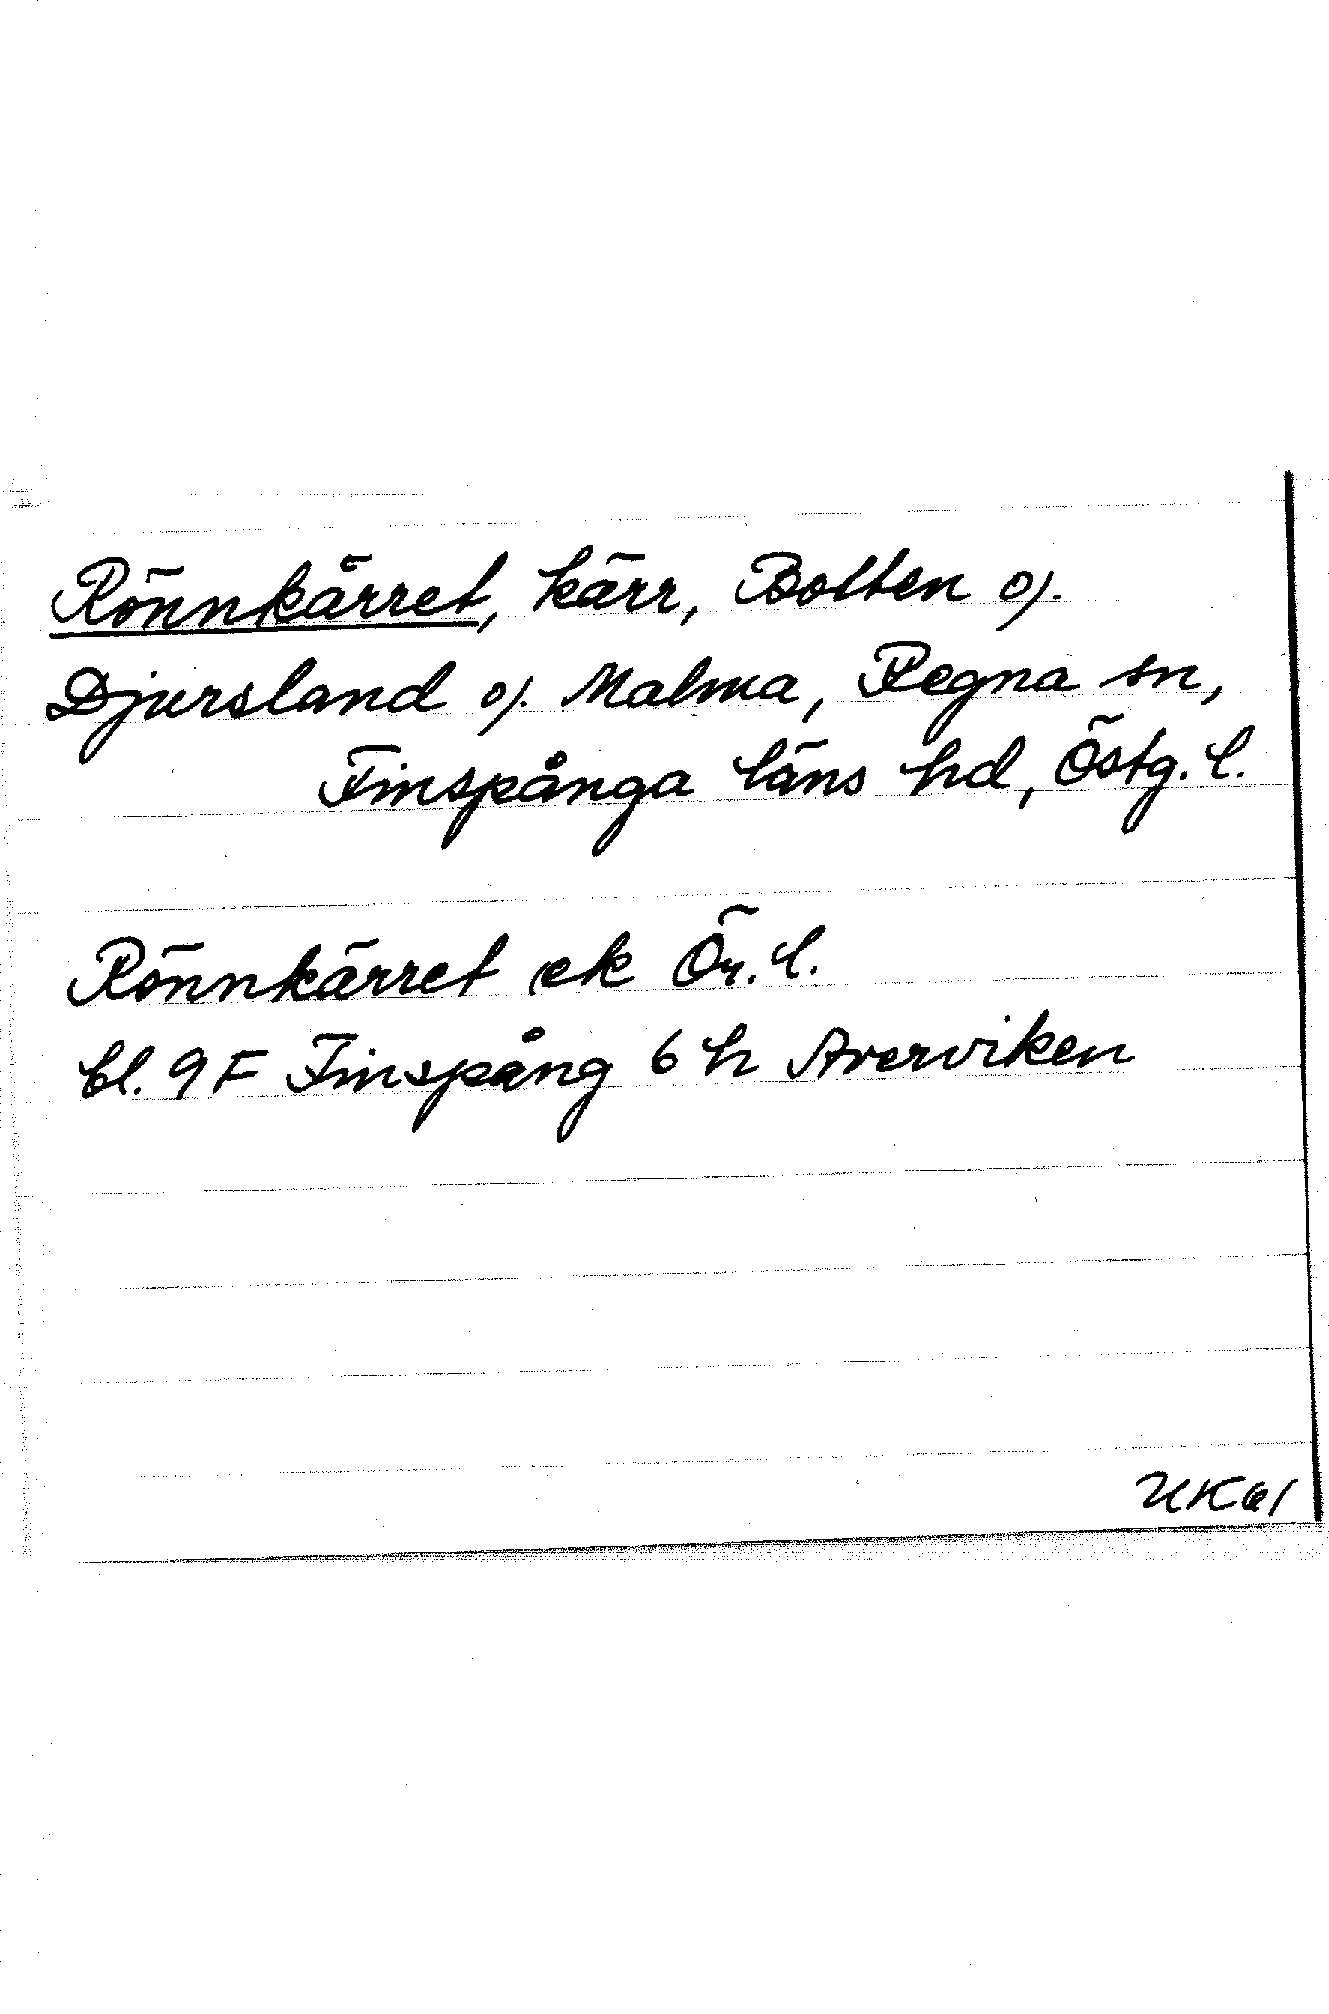 Rönnkärret, kärr, Botten o/.
Djursland o/. Malma, Regna sn,
Finspånga läns hd, Östg. l.
Rönnkärret ek Ör. l.
bl. 9 F Finspång 6 h Averviken